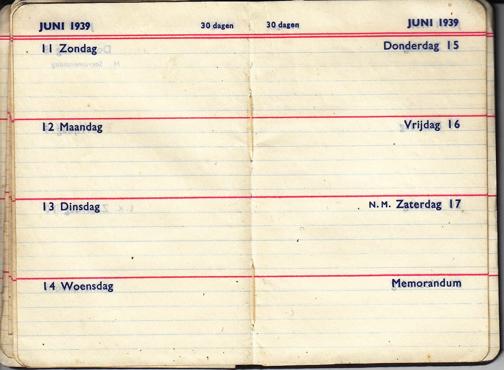 JUNI 1939 30 dagen
11 Zondag
12 Maandag
13 Dinsdag
14 Woensdag
30 dagen JUNI 1939
Donderdag 15
Vrijdag 16
N.M. Zaterdag 17
Memorandum